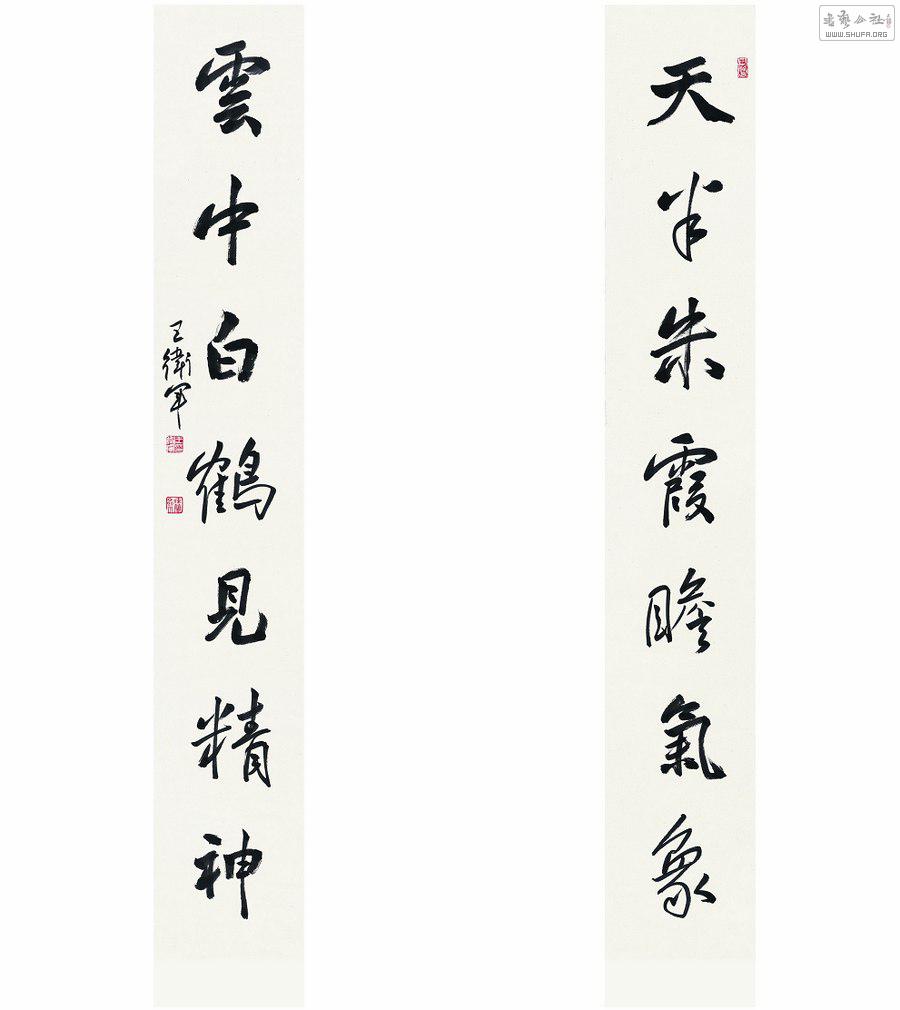 天半朱霞瞻氣象
雲中白鶴見精神
王衛軍
WWW.SHUFA.ORG